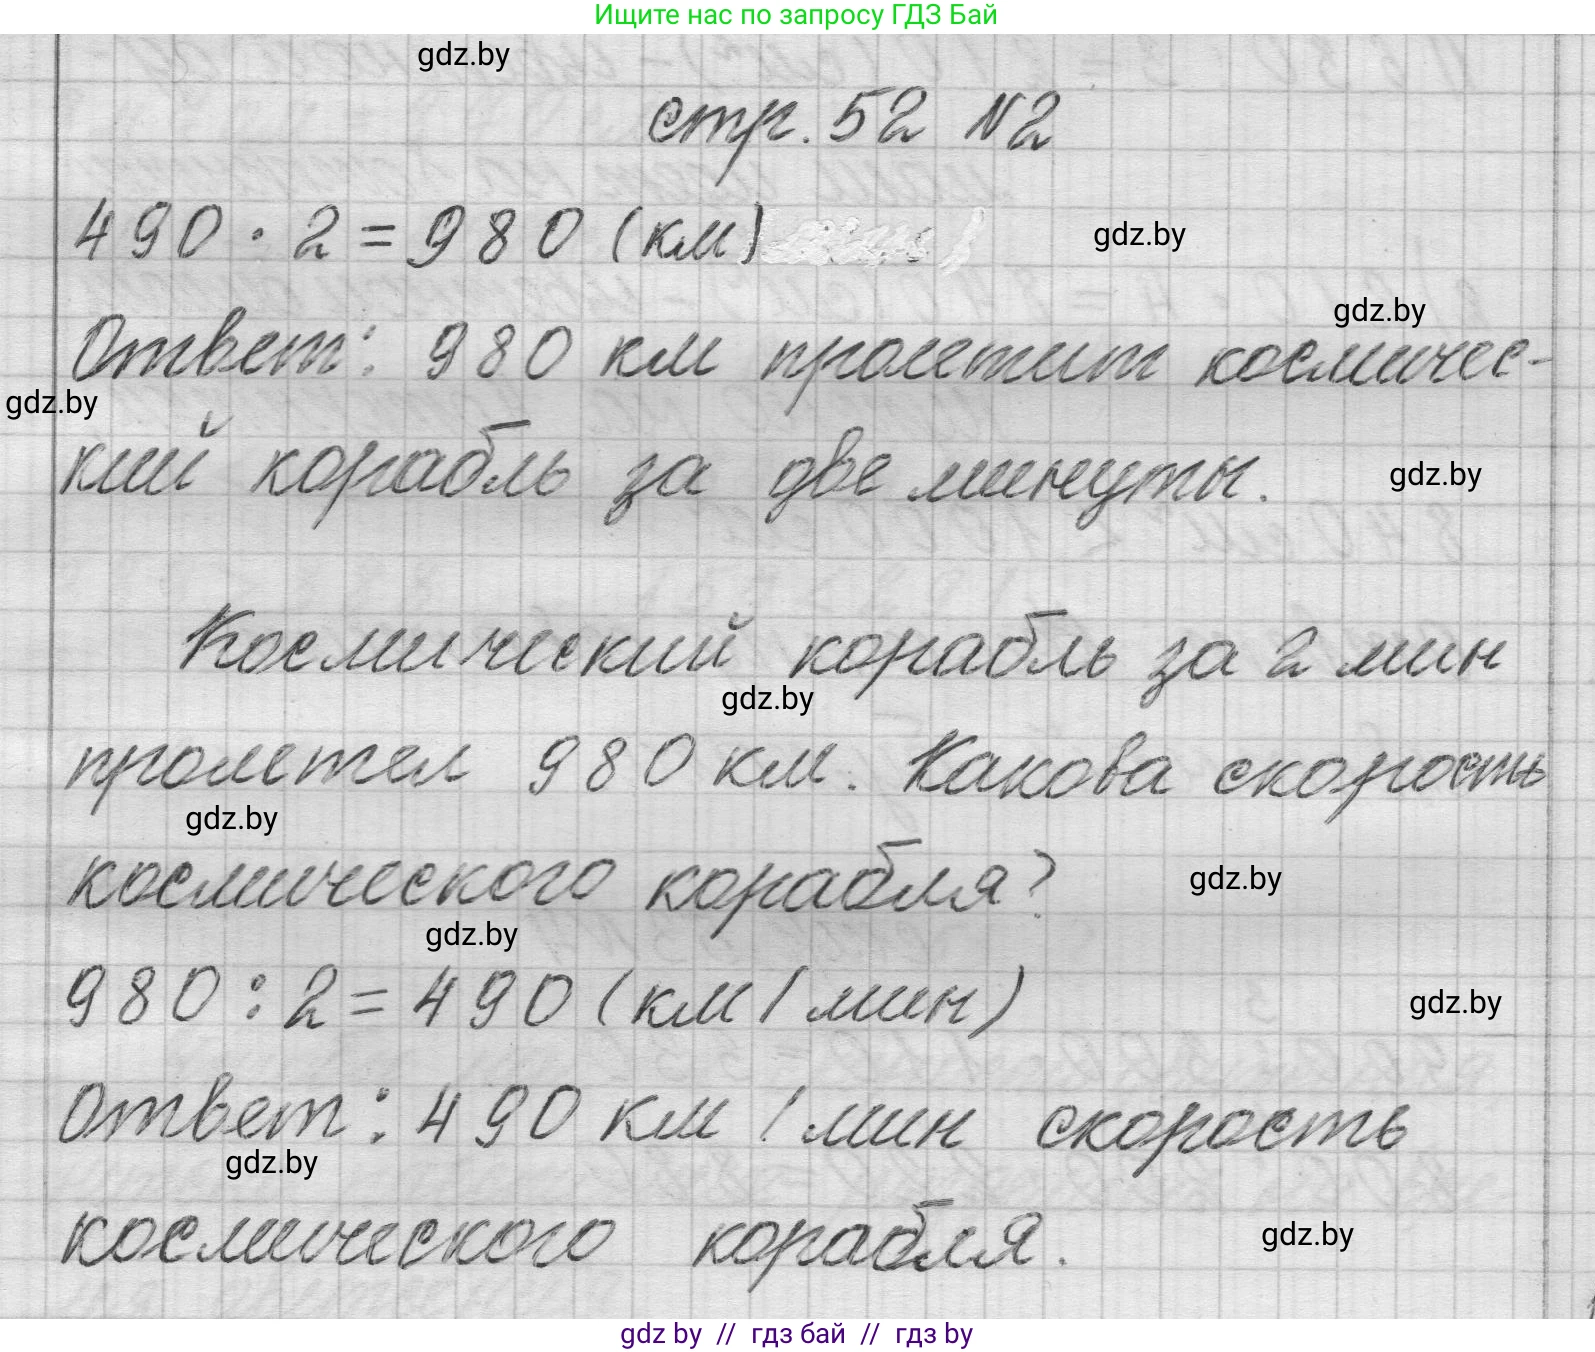 Ищите нас по запросу ГДЗ Бай
gdz.by
стр. 52 №2
490 · 2 = 980 (км)
gdz.by
gdz.by
Ответ: 980 км пролетит космичес-
gdz.by
кий корабль за две минуты.
gdz.by
Космический корабль за 2 мин
gdz.by
пролетел 980 км. Какова скорость
gdz.by
космического корабля?
gdz.by
gdz.by
980 : 2 = 490 (км/мин)
gdz.by
Ответ: 490 км/мин скорость
gdz.by
космического корабля.
gdz.by
gdz by // гдз бай // гдз by